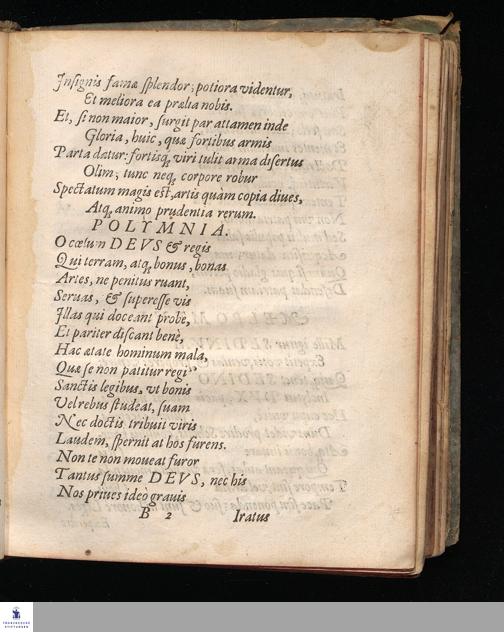 Insignis famæ splendor; potiora videntur,
Et meliora ea prælia nobis.
Et, si non maior, surgit par attamen inde
Gloria, huic, quæ fortibus armis
Parta datur: fortisq; viri tulit arma disertus
Olim; tunc neq; corpore robur
Spectatum magis est, artis quàm copia diues,
Atq; animo prudentia rerum.
POLYMNIA.
O cœlum DEVS & regis
Qui terram, atq; bonus, bonas
Artes, ne penitus ruant,
Seruas, & superesse vis
Illas qui doceant probè,
Et pariter discant benè,
Hac ætate hominum mala,
Quæ se non patitur regi
Sanctis legibus, vt bonis
Vel rebus studeat, suam
Nec doctis tribuit viris
Laudem, spernit at hos furens.
Non te non moueat furor
Tantus summe DEVS, nec his
Nos priues ideò grauis
B 2 Iratus
FRANCKESCHE
STIFTUNGEN